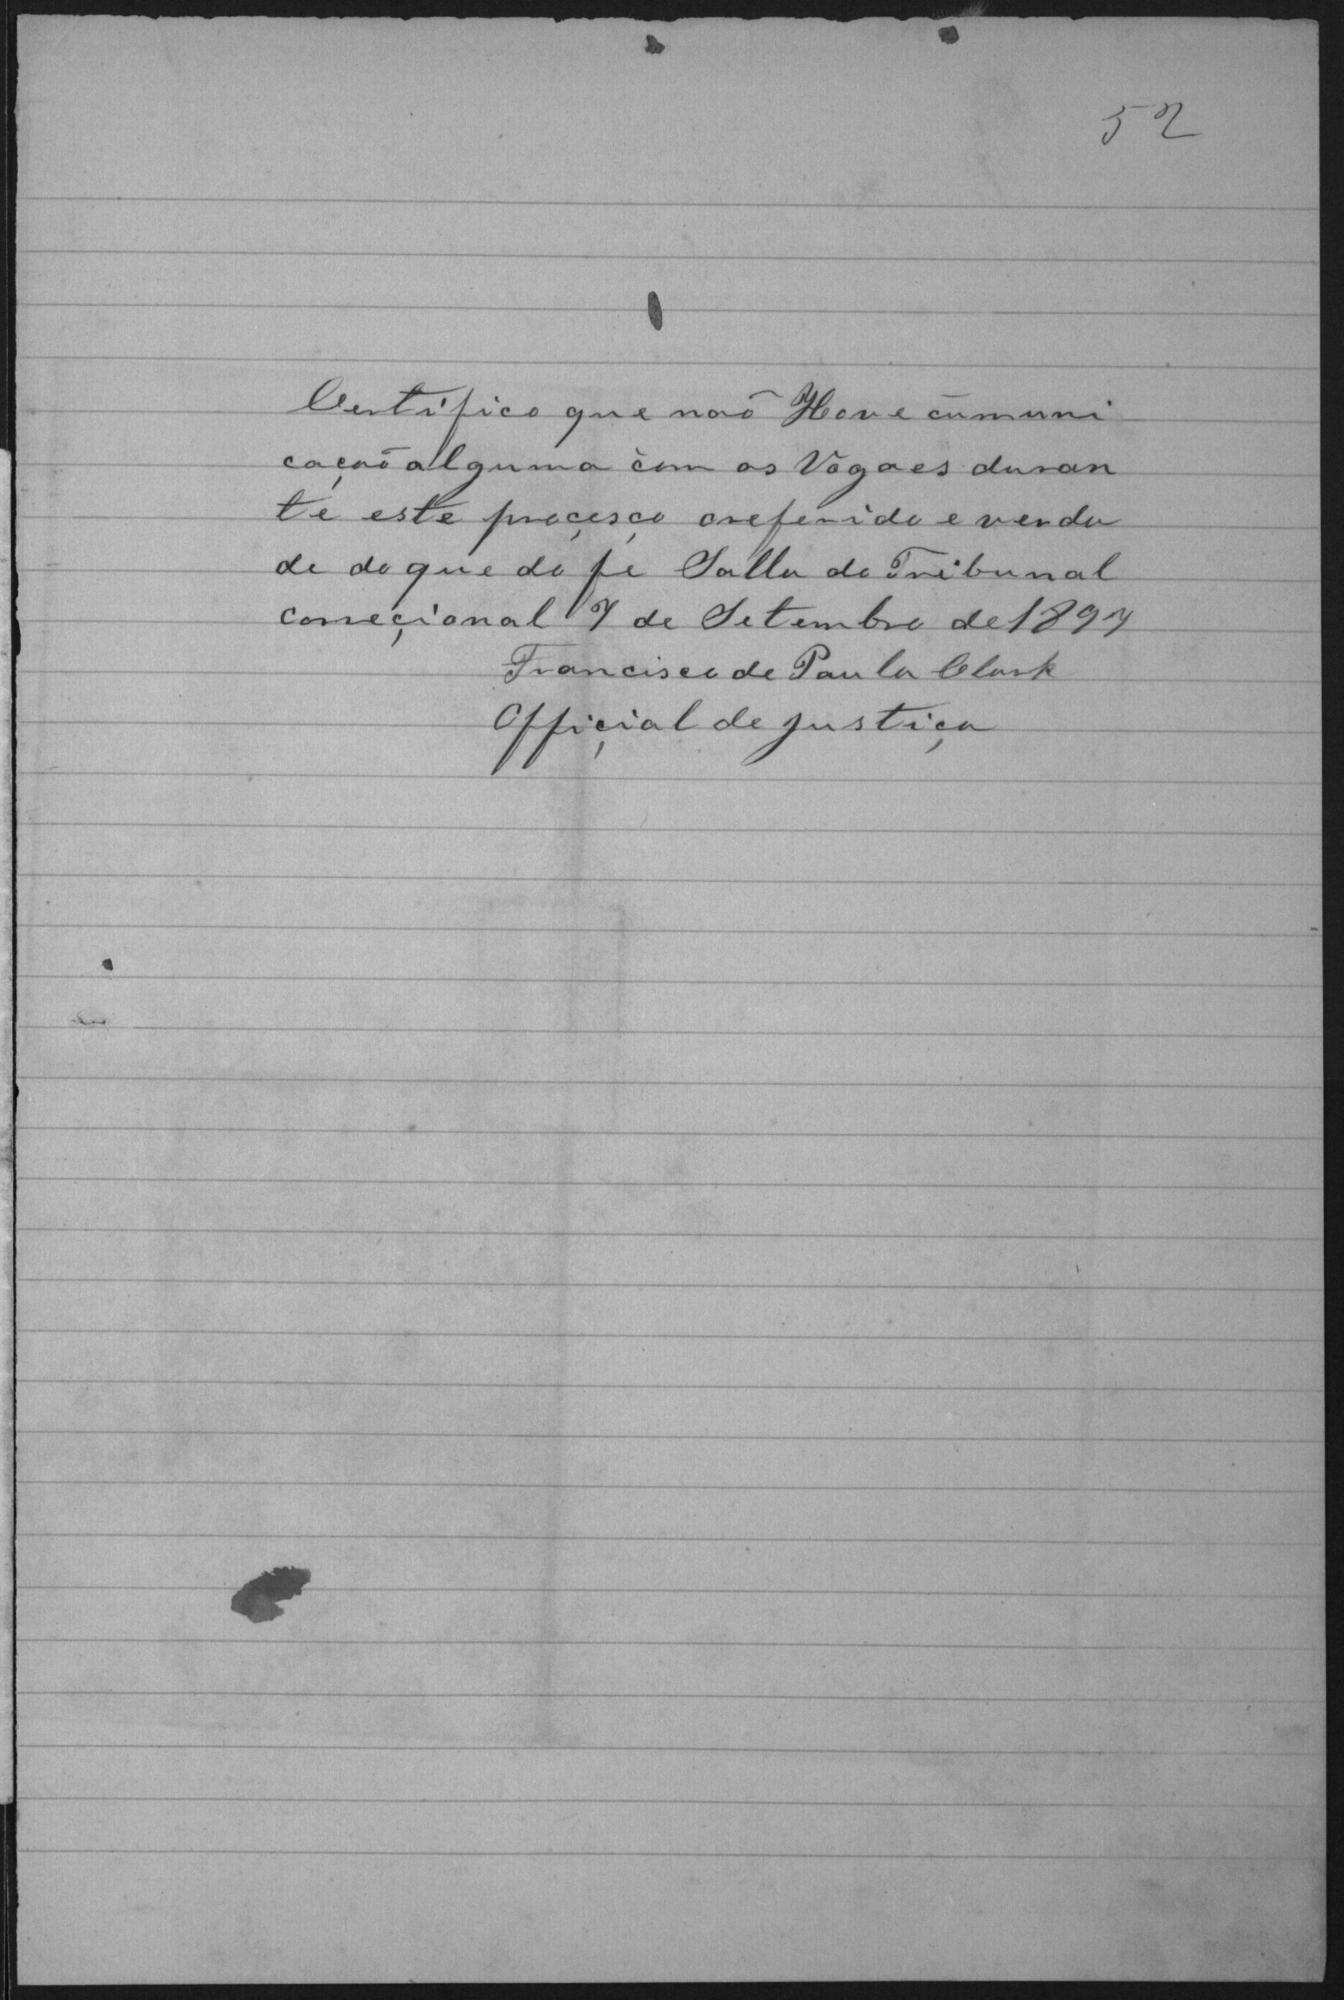 52
Certifico que naõ Hove cumuni
cacaõ alguma com os Vogaes duran
te este proçesço oreferido e verda
de do que do fé Salla do Tribunal
correçional 7 de Setembro de 1897
Francisco de Paula Clark
Offiçial de justiça